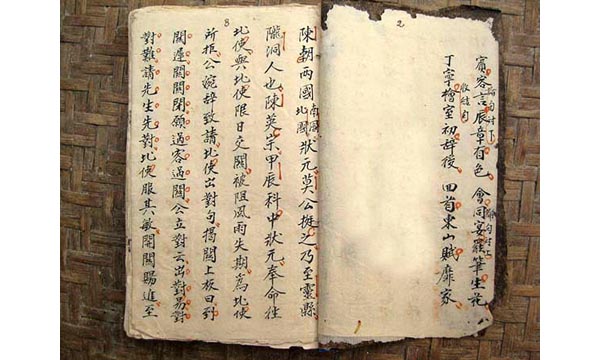 2
賓客言辰章百色 會同宴罷筆生花
丁寧檜室初辭後 回首東山賦靡家
陳朝兩國南國北 狀元莫公挺之乃至靈縣
隴洞人也陳英宗甲辰科中狀元奉命往
北使與北使限日交關被阻風雨失期為北使
所拒公婉辞致請北使出對句揭關上板曰到
關遲關關閉願過客過關公立對云出對易對
對難請先生先對北使服其敏開關賜進至